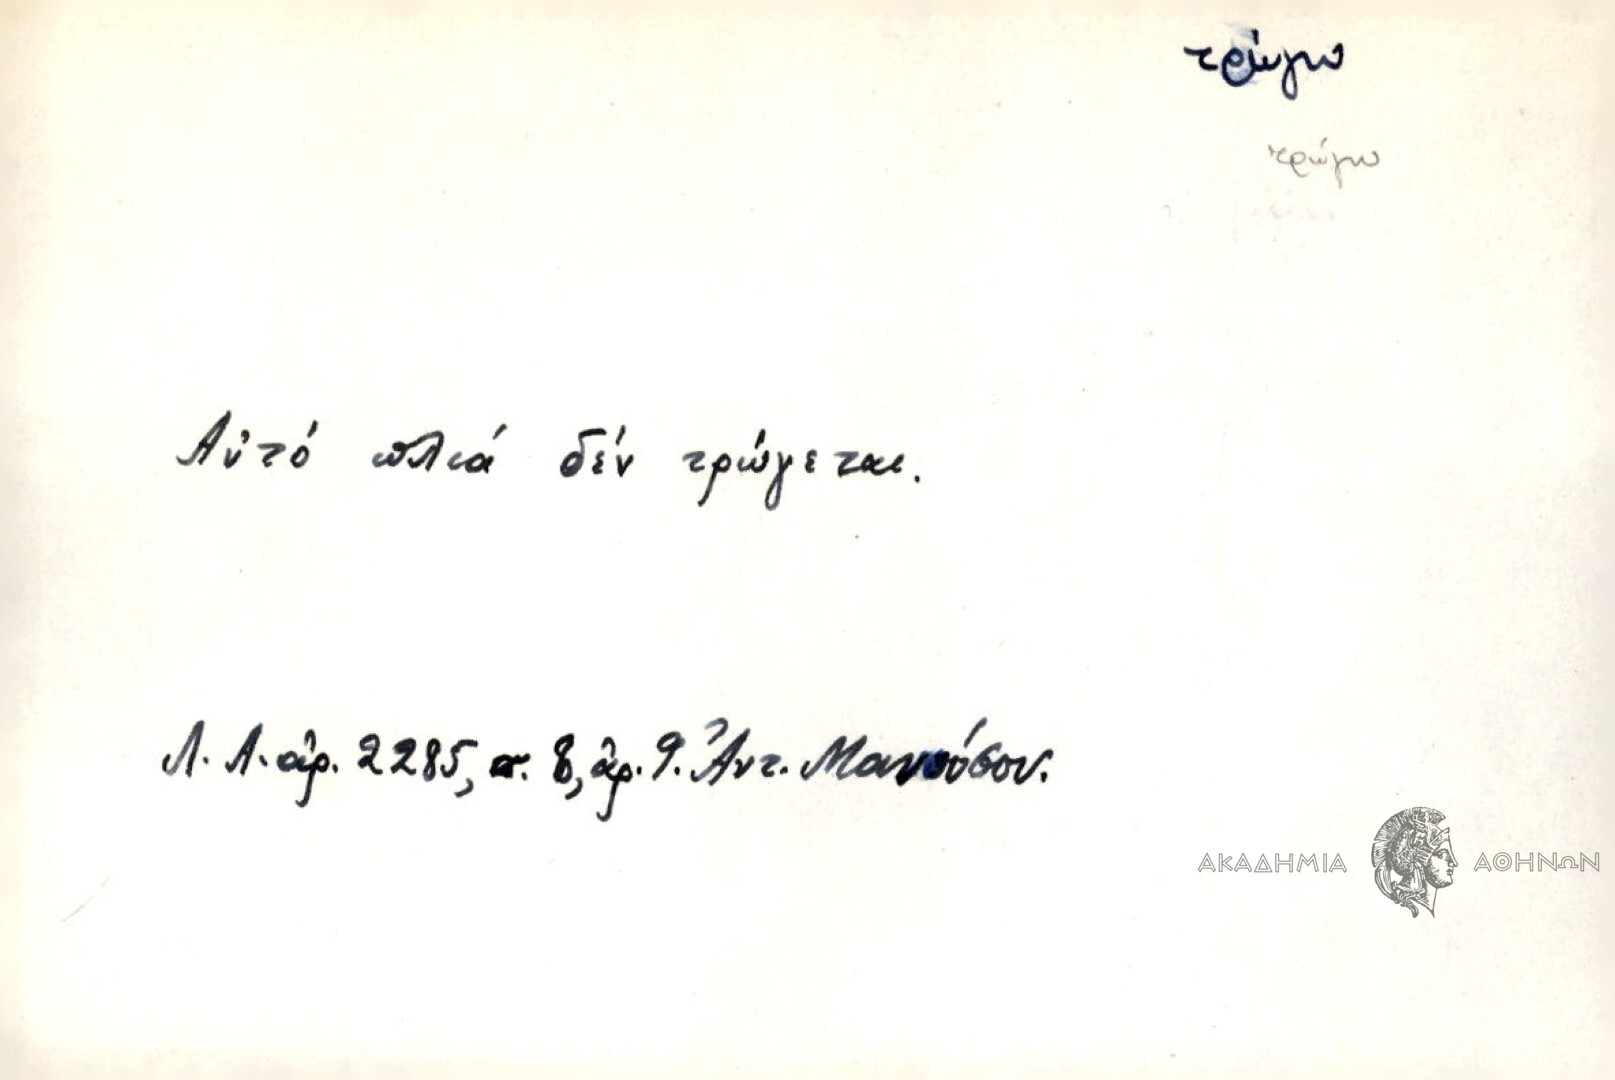 τρώγω
τρώγω
Αὐτό πλιά δέν τρώγεται.
Λ. Α. ἀρ. 2285, σ. 8, ἀρ. 9. Ἀντ. Μανούσου.
ΑΚΑΔΗΜΙΑ ΑΘΗΝΩΝ